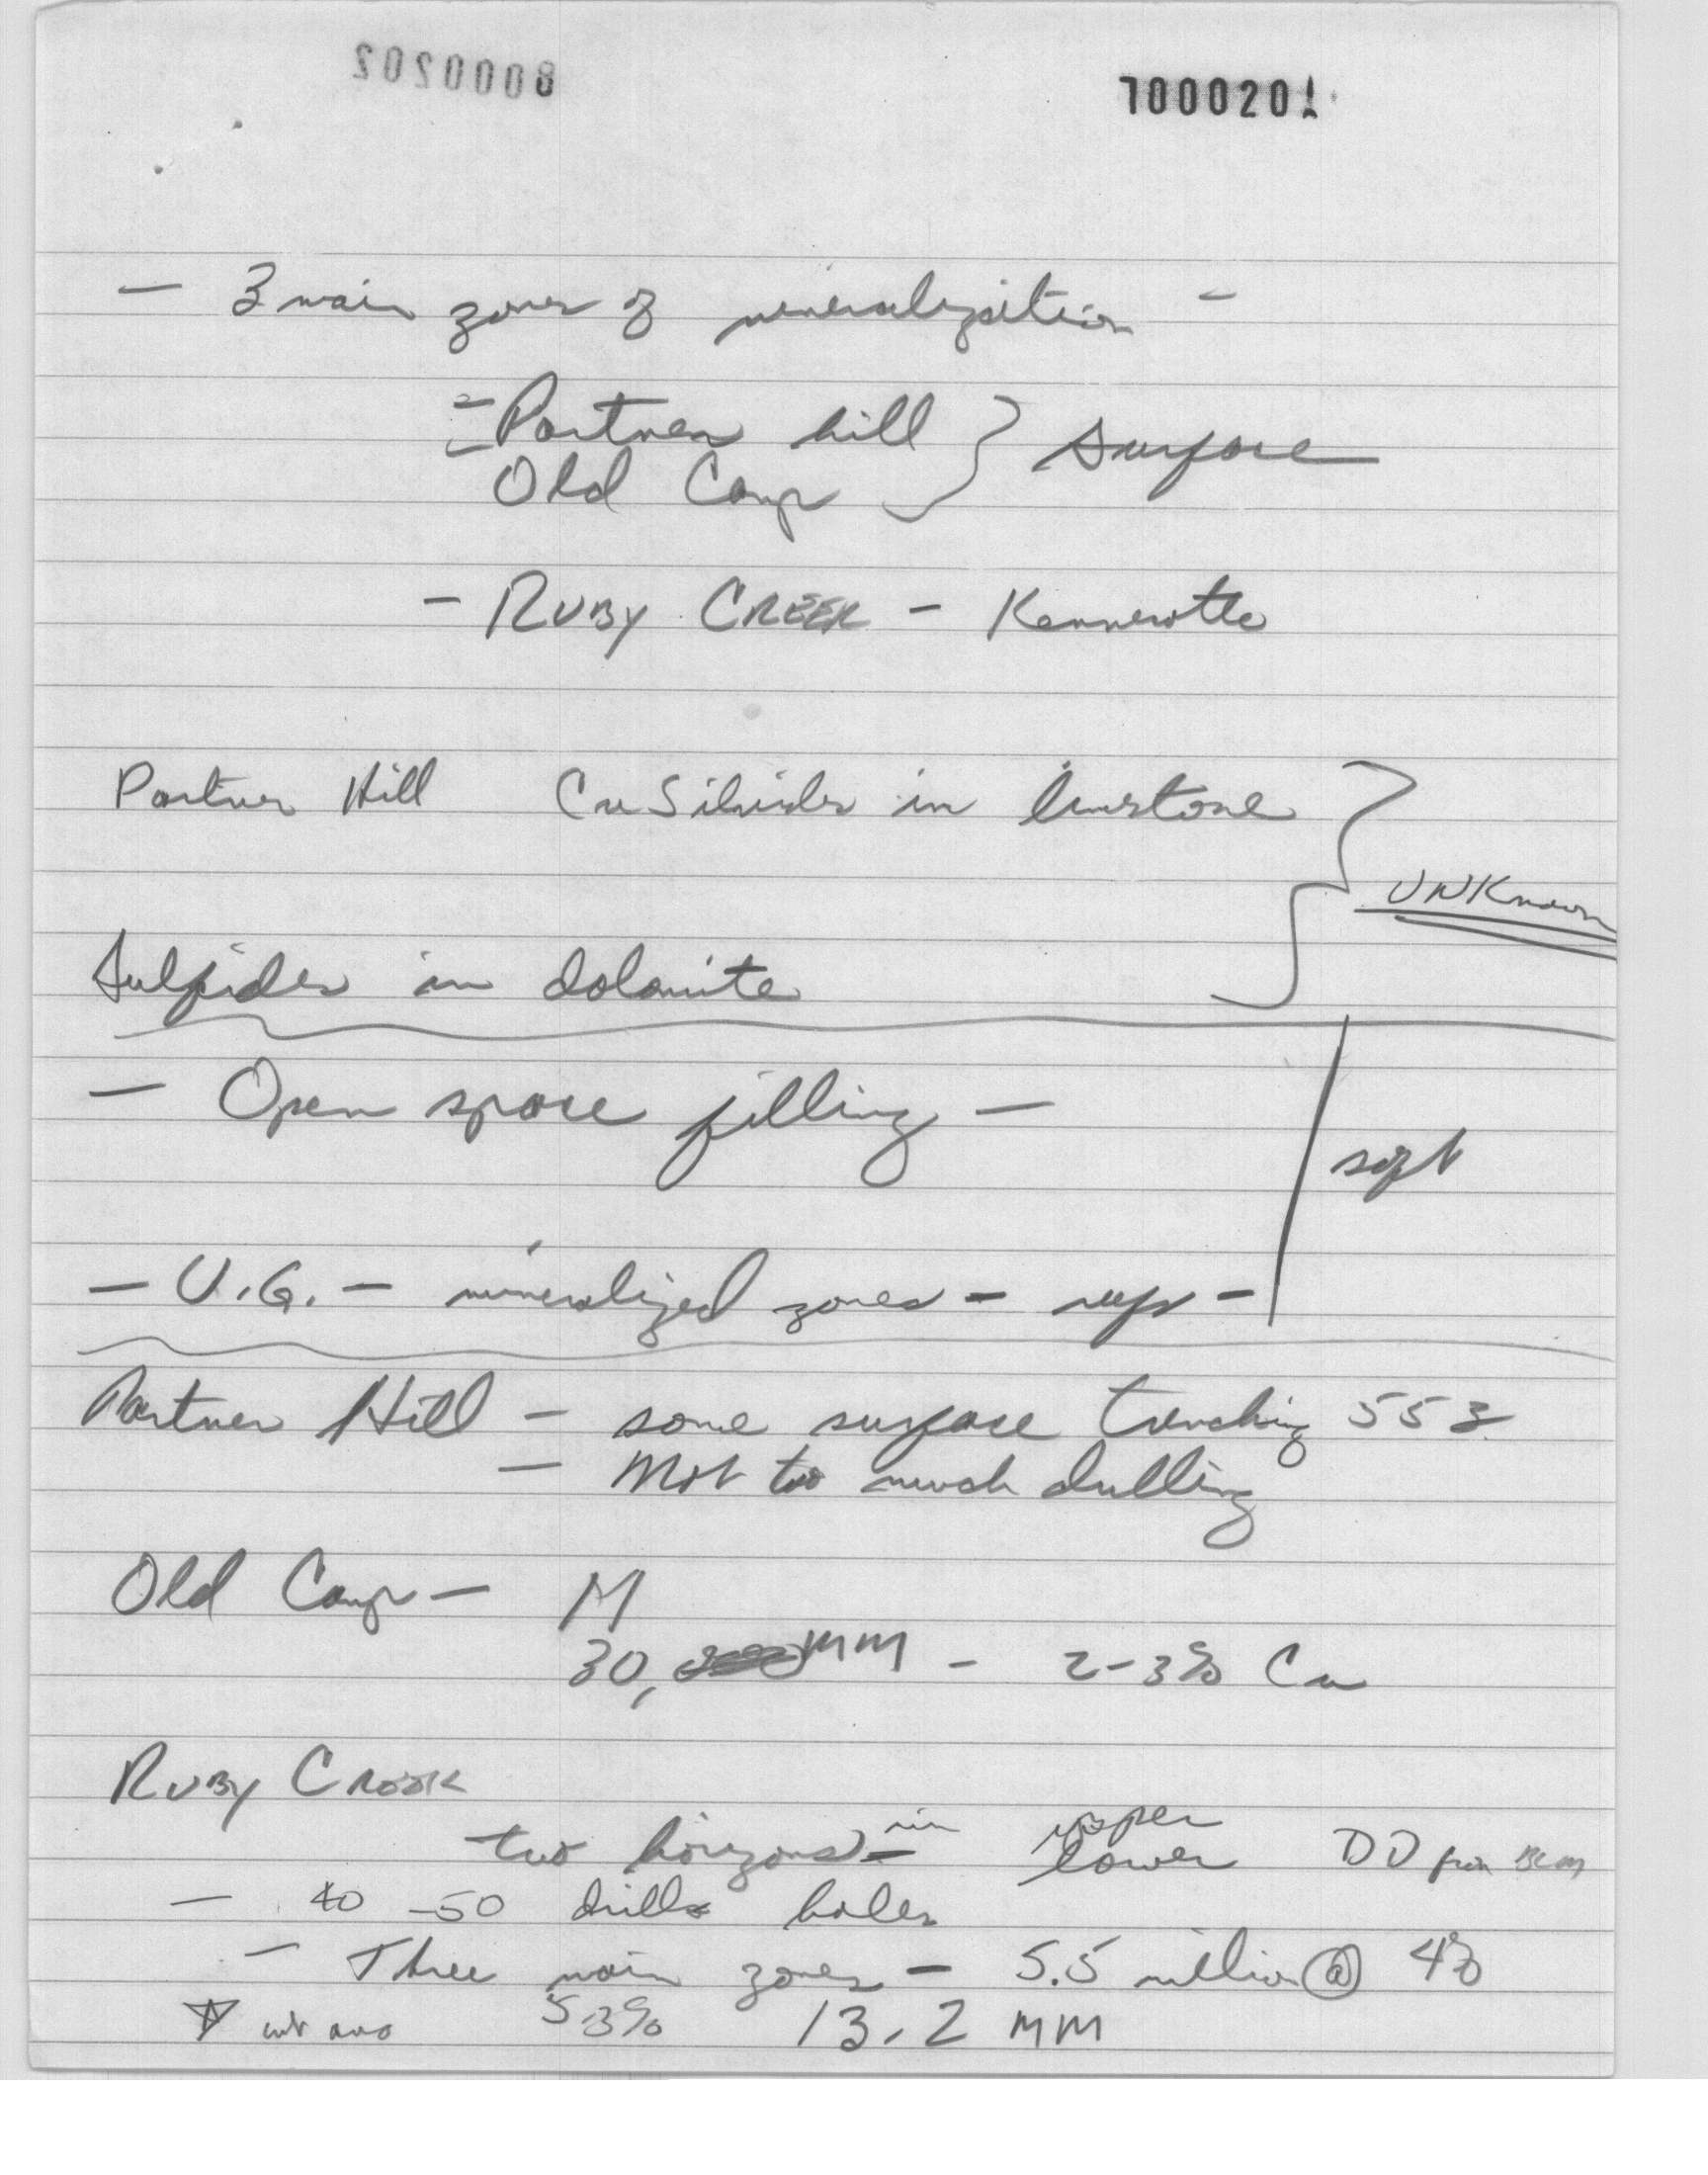 7000201
- 3 main zones of mineralization -
= Partner hill } Surface
- Old Camp
- RUBY CREEK - Kennecott
Partner Hill Cu Silicides in limestone } UNKnown
Sulfides in dolomite
- Open space filling -
- U.G. - mineralized zones -
Partner Hill - some surface trenching
- Not too much drilling
Old Camp - M
30, MM - 2-3% Cu
RUBY Creek
two horizons - in upper
lower DD from
- 40 -50 drill holes
- Three main zones - 5.5 million @ 4%
13.2 MM